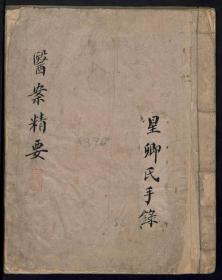 星卿氏手錄
醫案精要